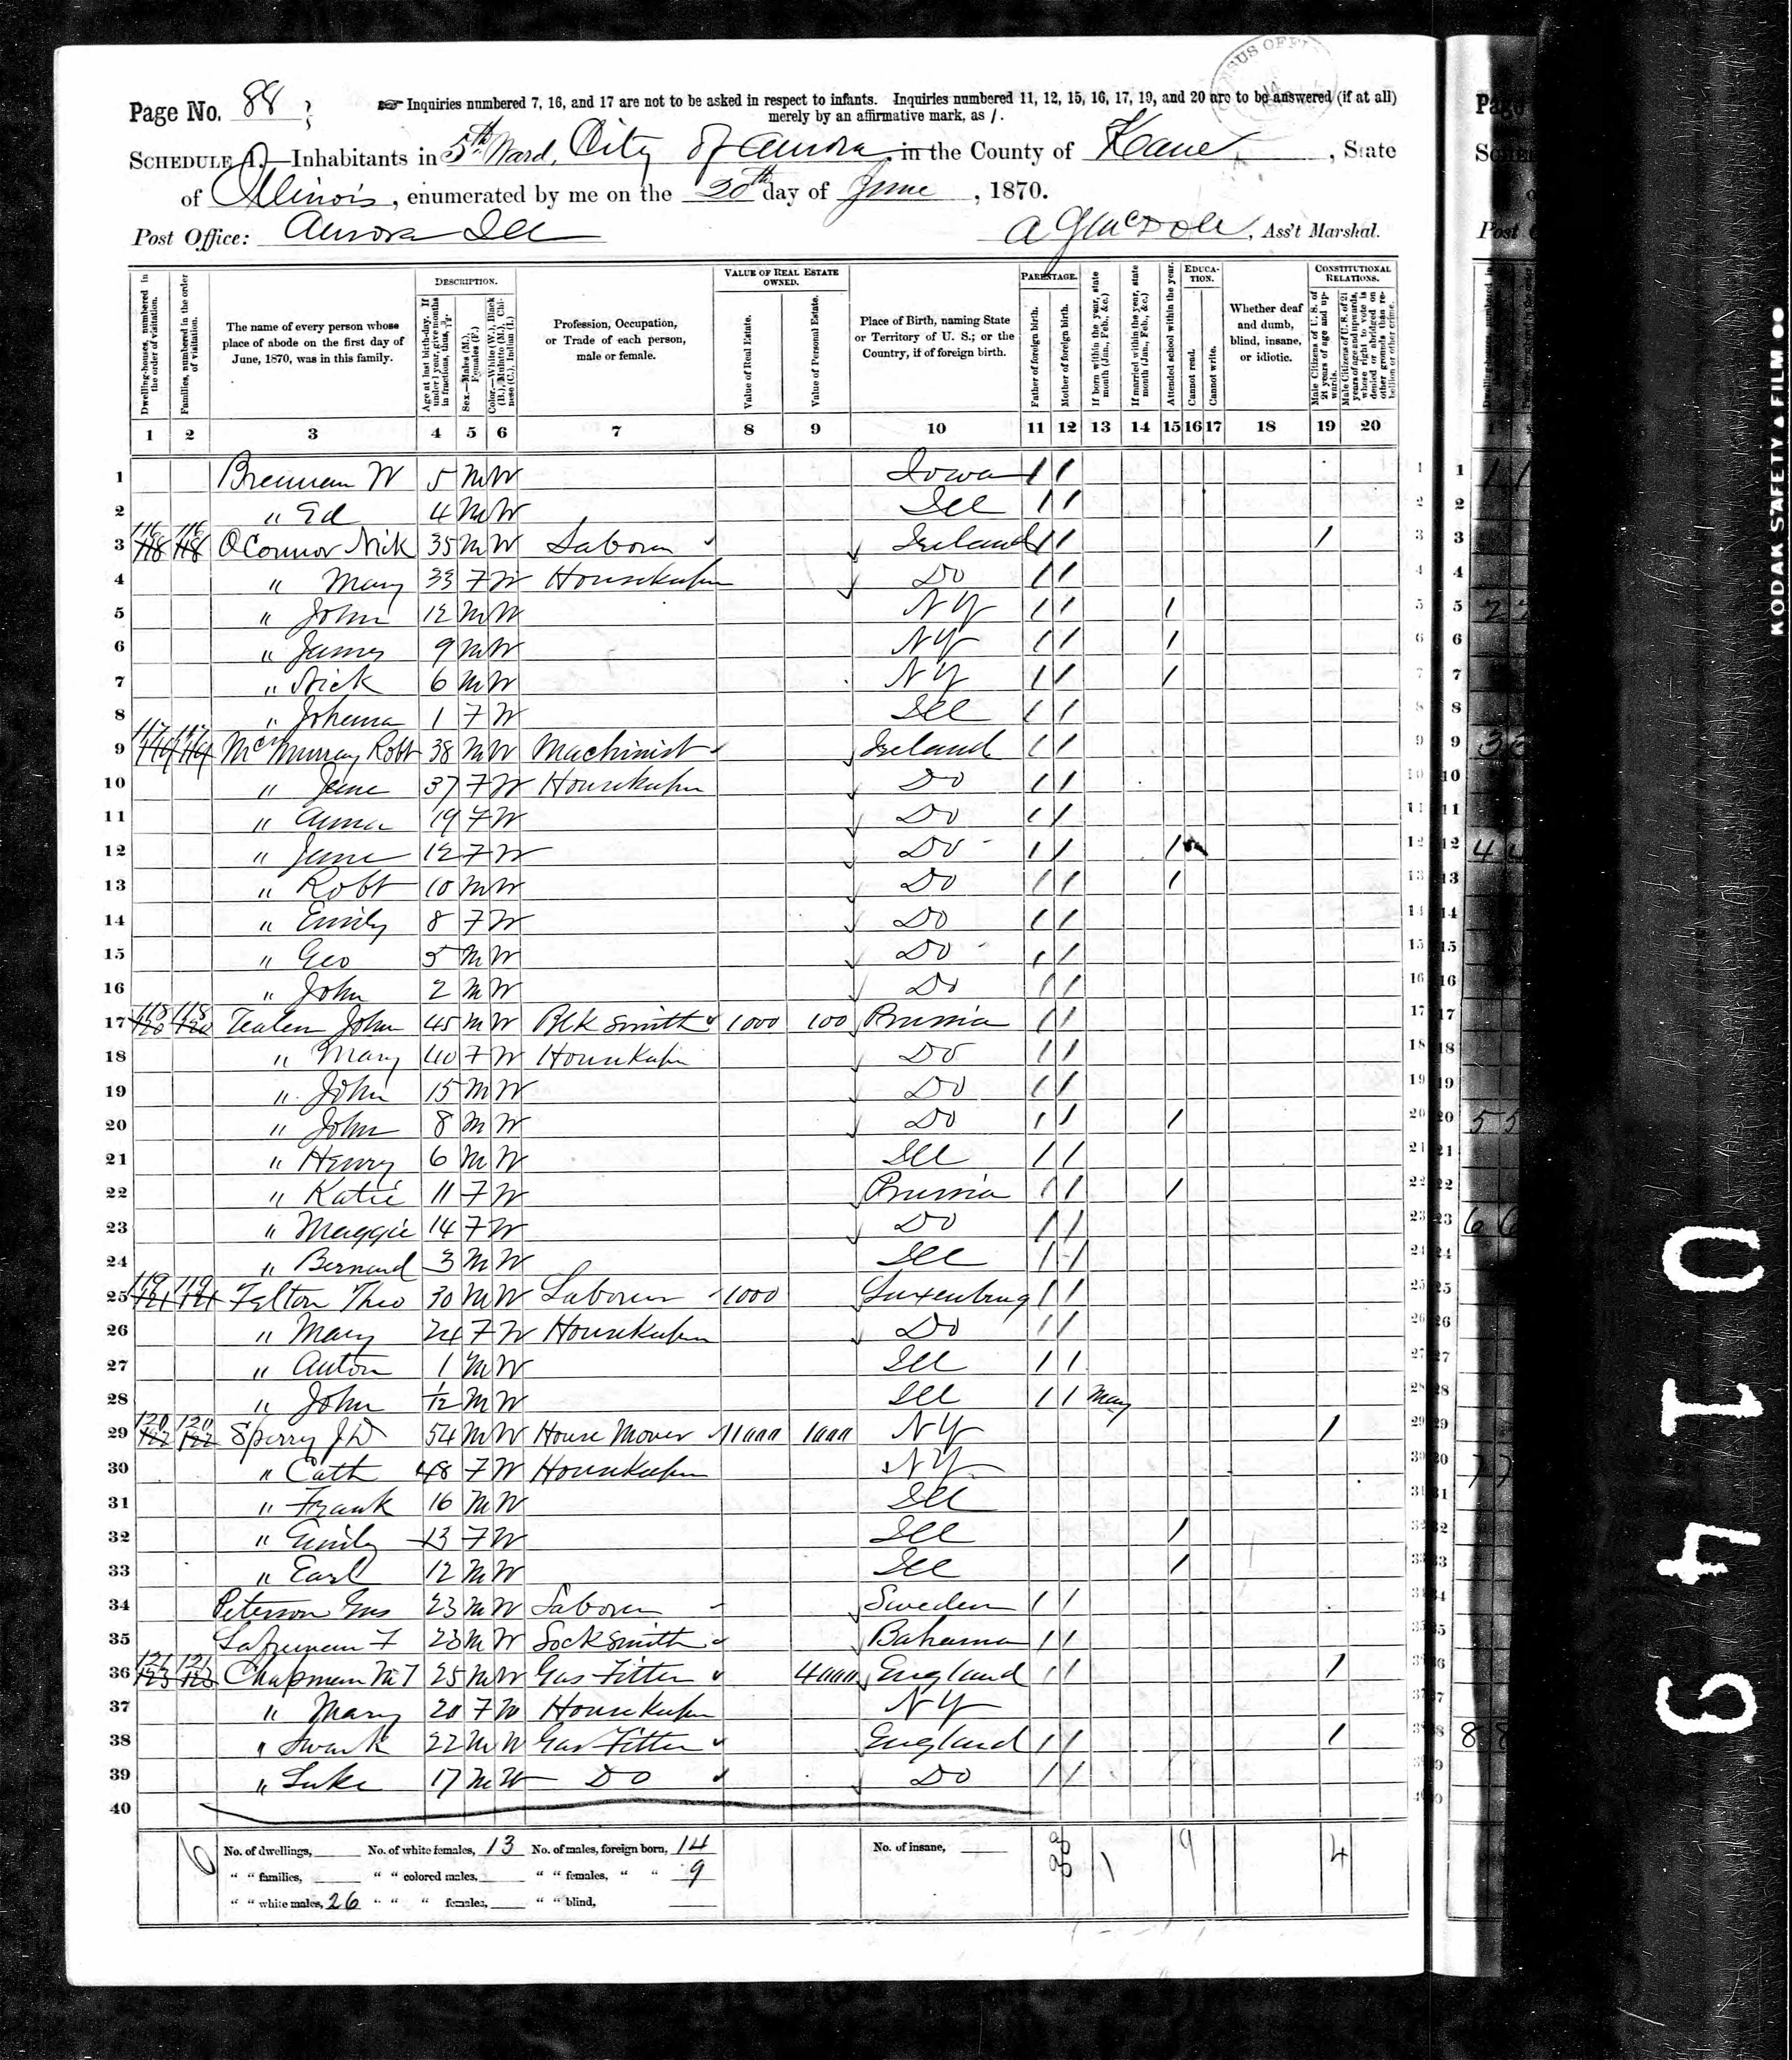 Page No. 88
Inquiries numbered 7, 16, and 17 are not to be asked in respect to infants. Inquiries numbered 11, 12, 15, 16, 17, 19, and 20 are to be answered (if at all)
merely by an affirmative mark, as /.
SCHEDULE 1.—Inhabitants in 5th Ward, City of Aurora, in the County of Kane, State
of Illinois, enumerated by me on the 20th day of June, 1870.
Post Office: Aurora Ill
Ass't Marshal.
DESCRIPTION.
VALUE OF REAL ESTATE OWNED.
PARENTAGE.
EDUCATION.
CONSTITUTIONAL RELATIONS.
Dwelling-houses, numbered in the order of visitation.
Families, numbered in the order of visitation.
The name of every person whose place of abode on the first day of June, 1870, was in this family.
Age at last birth-day. If under 1 year, give months in fractions, thus, 3/12
Sex.—Males (M.), Females (F.)
Color.—White (W.), Black (B.), Mulatto (M.), Chinese (C.), Indian (I.)
Profession, Occupation, or Trade of each person, male or female.
Value of Real Estate.
Value of Personal Estate.
Place of Birth, naming State or Territory of U. S.; or the Country, if of foreign birth.
Father of foreign birth.
Mother of foreign birth.
If born within the year, state month (Jan., Feb., &c.)
If married within the year, state month (Jan., Feb., &c.)
Attended school within the year.
Cannot read.
Cannot write.
Whether deaf and dumb, blind, insane, or idiotic.
Male Citizens of U. S. of 21 years of age and upwards.
Male Citizens of U. S. of 21 years of age and upwards, whose right to vote is denied or abridged on other grounds than rebellion or other crime.
1 2 3 4 5 6 7 8 9 10 11 12 13 14 15 16 17 18 19 20
1 Brennan W 5 M W Iowa / /
2 " Ed 4 M W Ill / /
3 116 116 O'Connor Nick 35 M W Laborer Ireland / / /
4 " Mary 33 F W Housekeeper Do / /
5 " John 12 M W N Y / / /
6 " James 9 M W N Y / / /
7 " Nick 6 M W N Y / / /
8 " Johanna 1 F W Ill / /
9 117 117 McMurray Robt 38 M W Machinist Ireland / /
10 " Jane 37 F W Housekeeper Do / /
11 " Anna 19 F W Do / /
12 " Jane 12 F W Do / / /
13 " Robt 10 M W Do / / /
14 " Emily 8 F W Do / /
15 " Geo 5 M W Do / /
16 " John 2 M W Do / /
17 118 118 John 45 M W Blk Smith 1000 100 Prussia / /
18 " Mary 40 F W Housekeeper Do / /
19 " John 15 M W Do / /
20 " John 8 M W Do / / /
21 " Henry 6 M W Ill / /
22 " Katie 11 F W Prussia / / /
23 " Maggie 14 F W Do / /
24 " Bernard 3 M W Ill / /
25 119 119 Felton Theo 30 M W Laborer 1000 Luxenburg / /
26 " Mary 24 F W Housekeeper Do / /
27 " Anton 1 M W Ill / /
28 " John 1/12 M W Ill / / May
29 120 120 Sperry J D 54 M W House Mover 11000 1000 N Y /
30 " Cath 48 F W Housekeeper N Y
31 " Frank 16 M W Ill
32 " Emily 13 F W Ill /
33 " Earl 12 M W Ill /
34 Peterson Gus 23 M W Laborer Sweden / /
35 F 23 M W Locksmith Bahama / /
36 121 121 Chapman 25 M W Gas Fitter 4000 England / / /
37 " Mary 20 F W Housekeeper N Y
38 " 22 M W Gas Fitter England / / /
39 " Luke 17 M W Do Do / /
40
No. of dwellings, No. of white females, 13 No. of males, foreign born, 14 No. of insane,
" " families, " " colored males, " " females, " " 9
" " white males, 26 " " " females, " " blind,
1 9 4
KODAK SAFETY FILM
0143